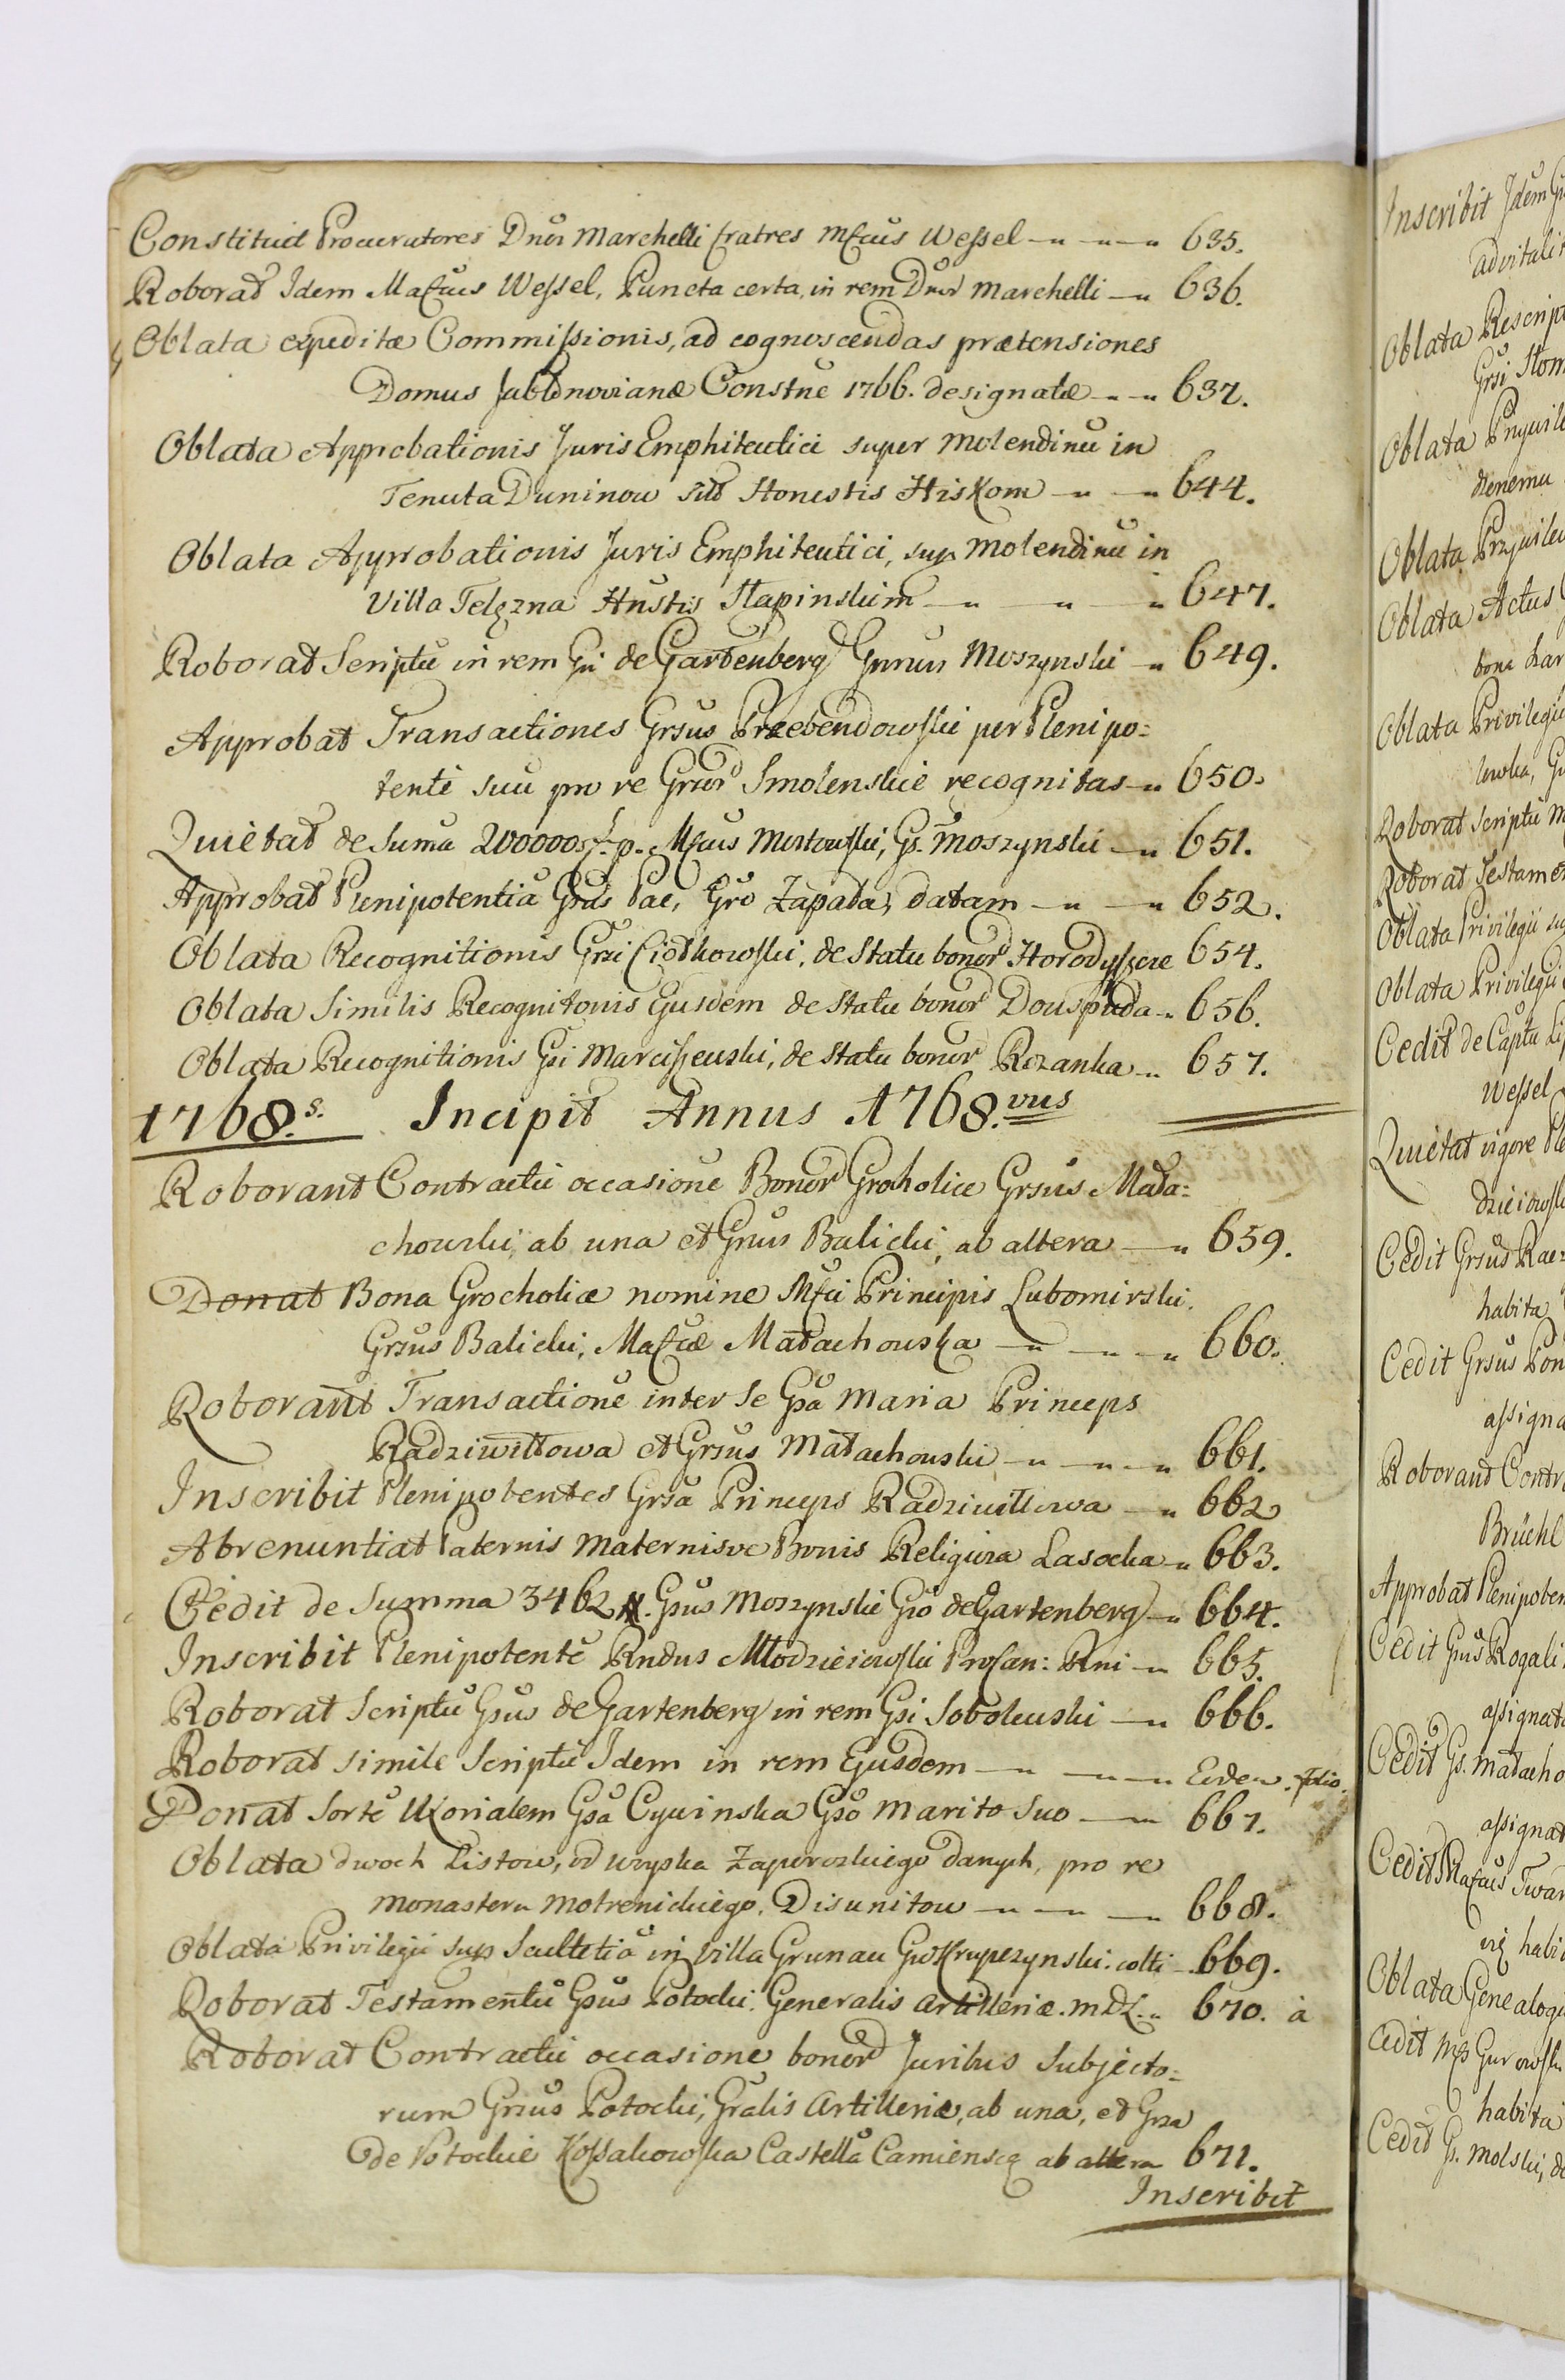 Constituit Procuratores Dnor Marchelli fratres Mfcus Wessel 635.
Roborat Idem Mafcus Wessel, Puncta certa, in rem Dnor Marchelli 636.
Oblata expeditæ Commissionis, ad cognoscendas prætensiones
Domus Jabłonovianæ Constne 1766. designatæ 637.
Oblata Approbationis Juris Emphiteutici super Molendinu in
Tenuta Duninow Honestis Hiskom 644.
Oblata Approbationis Juris Emphiteutici, sup Molendinu in
Villa Telęzna Hnstis Stapinskim 647.
Roborat Scriptu in rem Gi de Gartenberg Gnrus Moszynski 649.
Approbat Transactiones Grsus Przebendowski per Plenipo=
tente suu pro re Gror Smolenskie recognitas 650.
Quietat de Suma 200000 f. p. Mfcus Mostowski, Gs. Moszynski 651.
Approbat Plenipotentia Grsus Pac, Gro Zapata, datam 652.
Oblata Recognitionis Grsi Ciołkowski, de Statu bonor Horodyszcze 654.
Oblata Similis Recognitonis Ejusdem de Statu bonor Douspuda 656.
Oblata Recognitionis Gsi Marciszewski, de Statu bonor Rozanka 657.
1768.s. Incipit Annus 1768.vus
Roborant Contractu occasione Bonor Groholice Grsus Mała=
chowski, ab una et Gnus Balicki, ab altera 659.
Donat Bona Grocholicæ nomine Mfci Principis Lubomirski,
Grsus Balicki, Mafcæ Małachowska 660.
Roborant Transactione inter Se Gsa Maria Princeps
Radziwiłłowa et Grsus Małachowski 661.
Inscribit Plenipotentes Grsa Princeps Radziwiłłowa 662
Abrenuntiat Paternis Maternisve Bonis Religiosa Lasocka 663.
Cedit de Summa 3462 #. Gsus Moszynski Gio de Gartenberg 664.
Inscribit Plenipotente Rndus Młodzieiowski Procan: Rni 665.
Roborat Scriptu Gsus de Gartenberg in rem Gsi Sobolewski 666.
Roborat simile Scriptu Idem in rem Ejusdem Eodem folio.
Donat Sorte Uxorialem Gsa Cywinska Gso Marito Suo 667.
Oblata dwoch Listow, od woyska Zaporozkiego danych, pro re
Monasteru Motrenickiego. Disunitow 668.
Oblata Privilegii sup Scultetia in Villa Grunau Gio Krupczynski. colti 669.
Roborat Testamentu Gsus Potocki, Generalis Artilleriæ. M.D.L. 670. a
Roborat Contractu occasione bonor Juribus Subjecto=
rum Grsus Potocki, Gralis Artilleriæ, ab una, et Grsa
de Potockie Kossakowska Castella Camiensca ab altera 671.
Inscribit
Inscribit Idem
advitali
Oblata Rescript
Grsi
Oblata
dzenemu
Oblata Przywilei
Oblata Actus
bona
Oblata Privilegii
Roborat Scriptu
Roborat Testamen
Oblata Privilegii
Oblata Privilegii
Cedit de Captu
Wessel
Quietat vigore
dzieiowski
Cedit Grsus
habita
Cedit Grsus
assigna
Roborant Contr
Brüehl
Approbat Plenipoten
Cedit Gnus Rogali
assignat
Cedit Gs. Małacho
assignat
Cedit Mafcus Twar
habi
Oblata Genealogi
Cedit Gurowski
habita
Cedit Gs. Molski, de